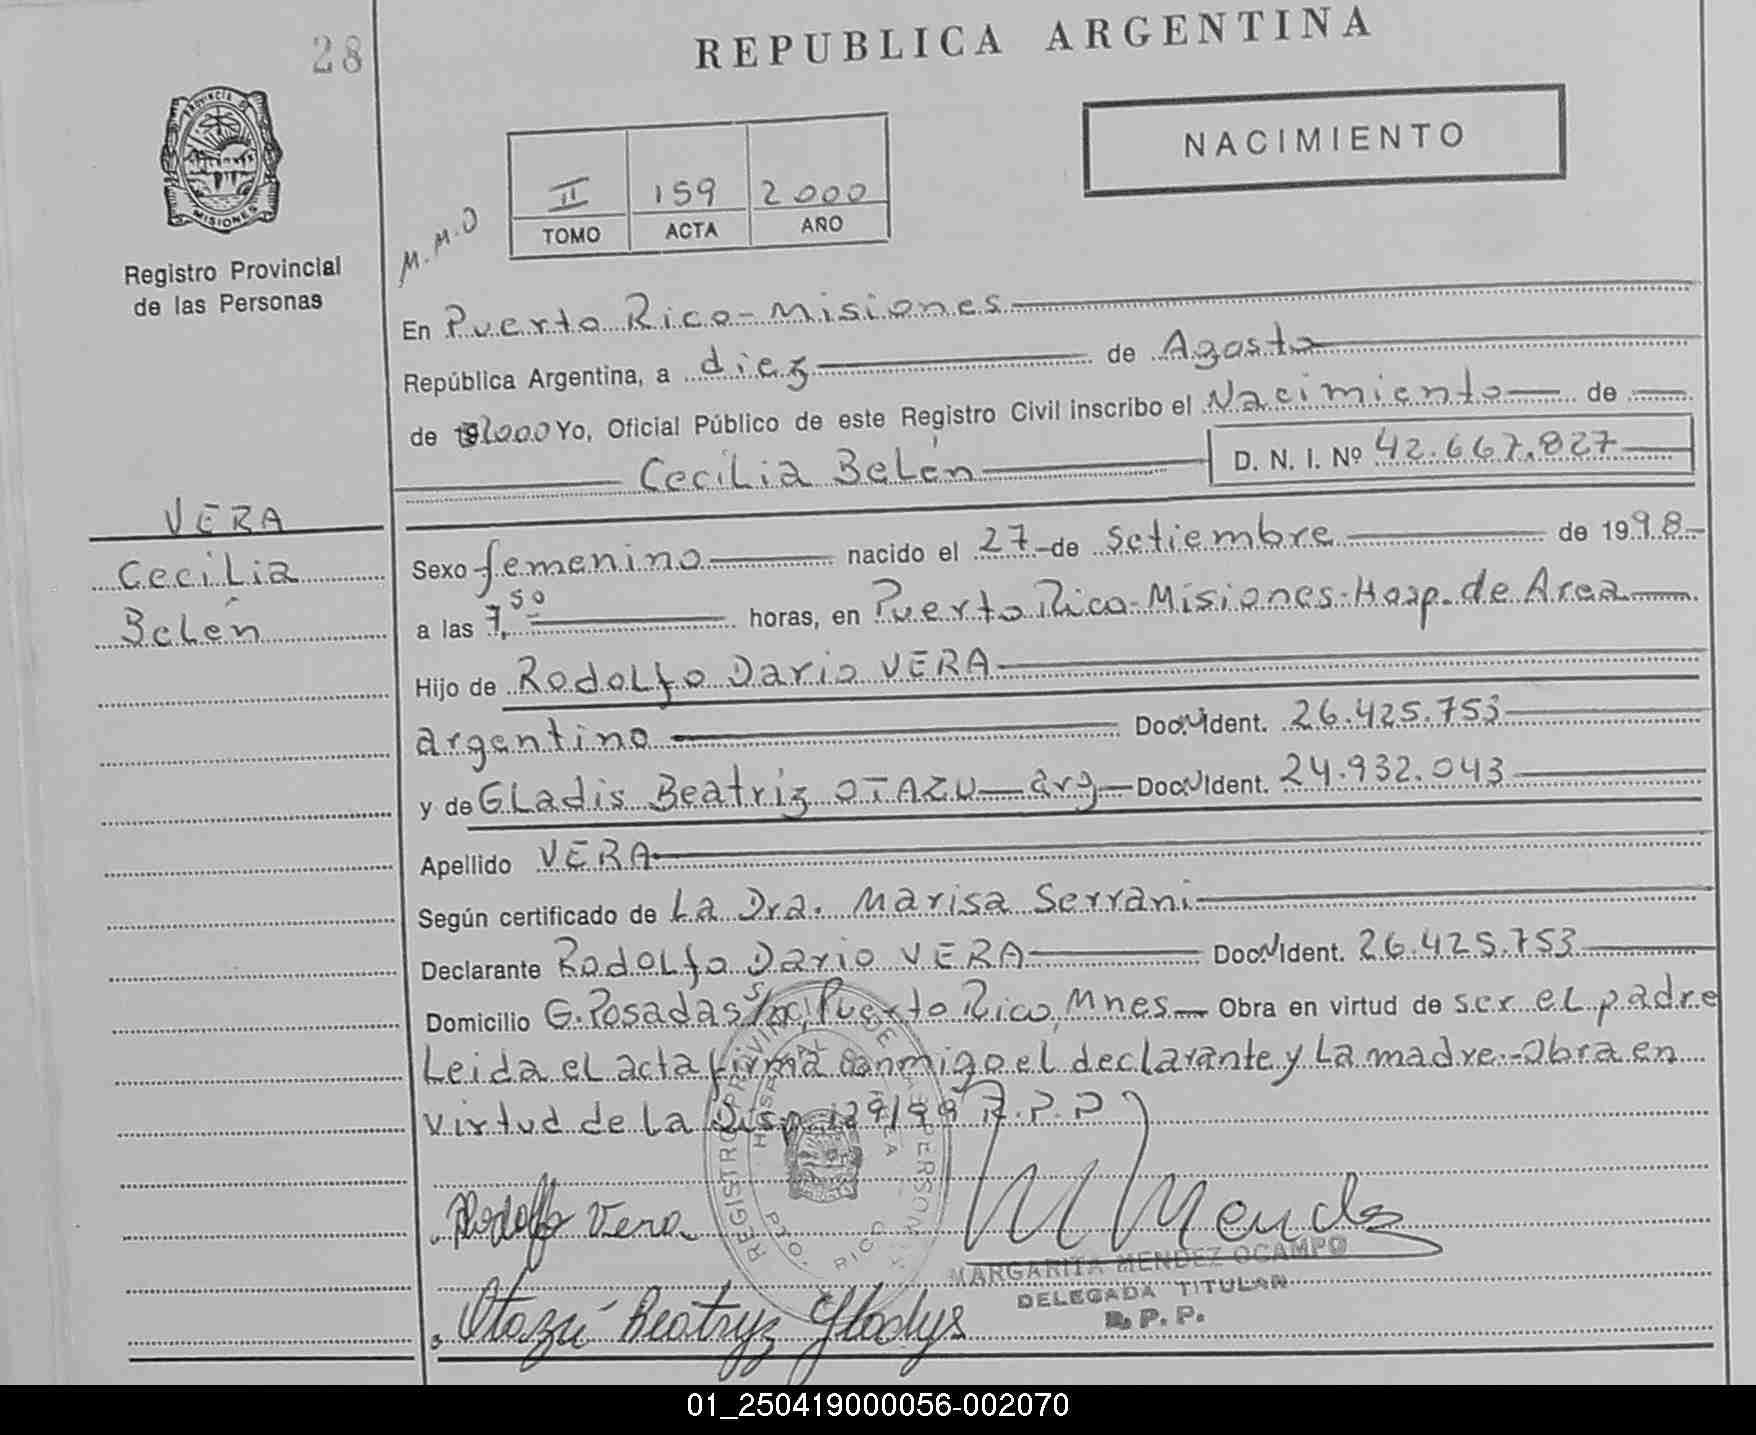 28
REPUBLICA ARGENTINA
NACIMIENTO
PROVINCIA DE
MISIONES
Registro Provincial
de las Personas
M.M.O
II 159 2000
TOMO ACTA AÑO
En Puerto Rico-Misiones
República Argentina, a diez de Agosto
de 2000 Yo, Oficial Público de este Registro Civil inscribo el Nacimiento de
Cecilia Belén D. N. I. Nº 42.667.827
VERA
Cecilia
Belén
Sexo femenino nacido el 27 de Setiembre de 1998
a las 7,50 horas, en Puerto Rico-Misiones-Hosp. de Area
Hijo de Rodolfo Dario VERA
argentino Doc. Ident. 26.425.753
y de Gladis Beatriz OTAZU arg Doc. Ident. 24.932.043
Apellido VERA
Según certificado de La Dra. Marisa Serrani
Declarante Rodolfo Dario VERA Doc. Ident. 26.425.753
Domicilio G. Posadas s/n, Puerto Rico, Mnes Obra en virtud de ser el padre
Leida el acta firma conmigo el declarante y La madre.-Obra en
virtud de la Disp. /99 R.P.P
Rodolfo Vera
M Mendez
MARGARITA MENDEZ OCAMPO
DELEGADA TITULAR
R. P. P.
Otazú Beatryz Gladys
REGISTRO PROVINCIAL DE LAS PERSONAS
PTO. RICO
01_250419000056-002070